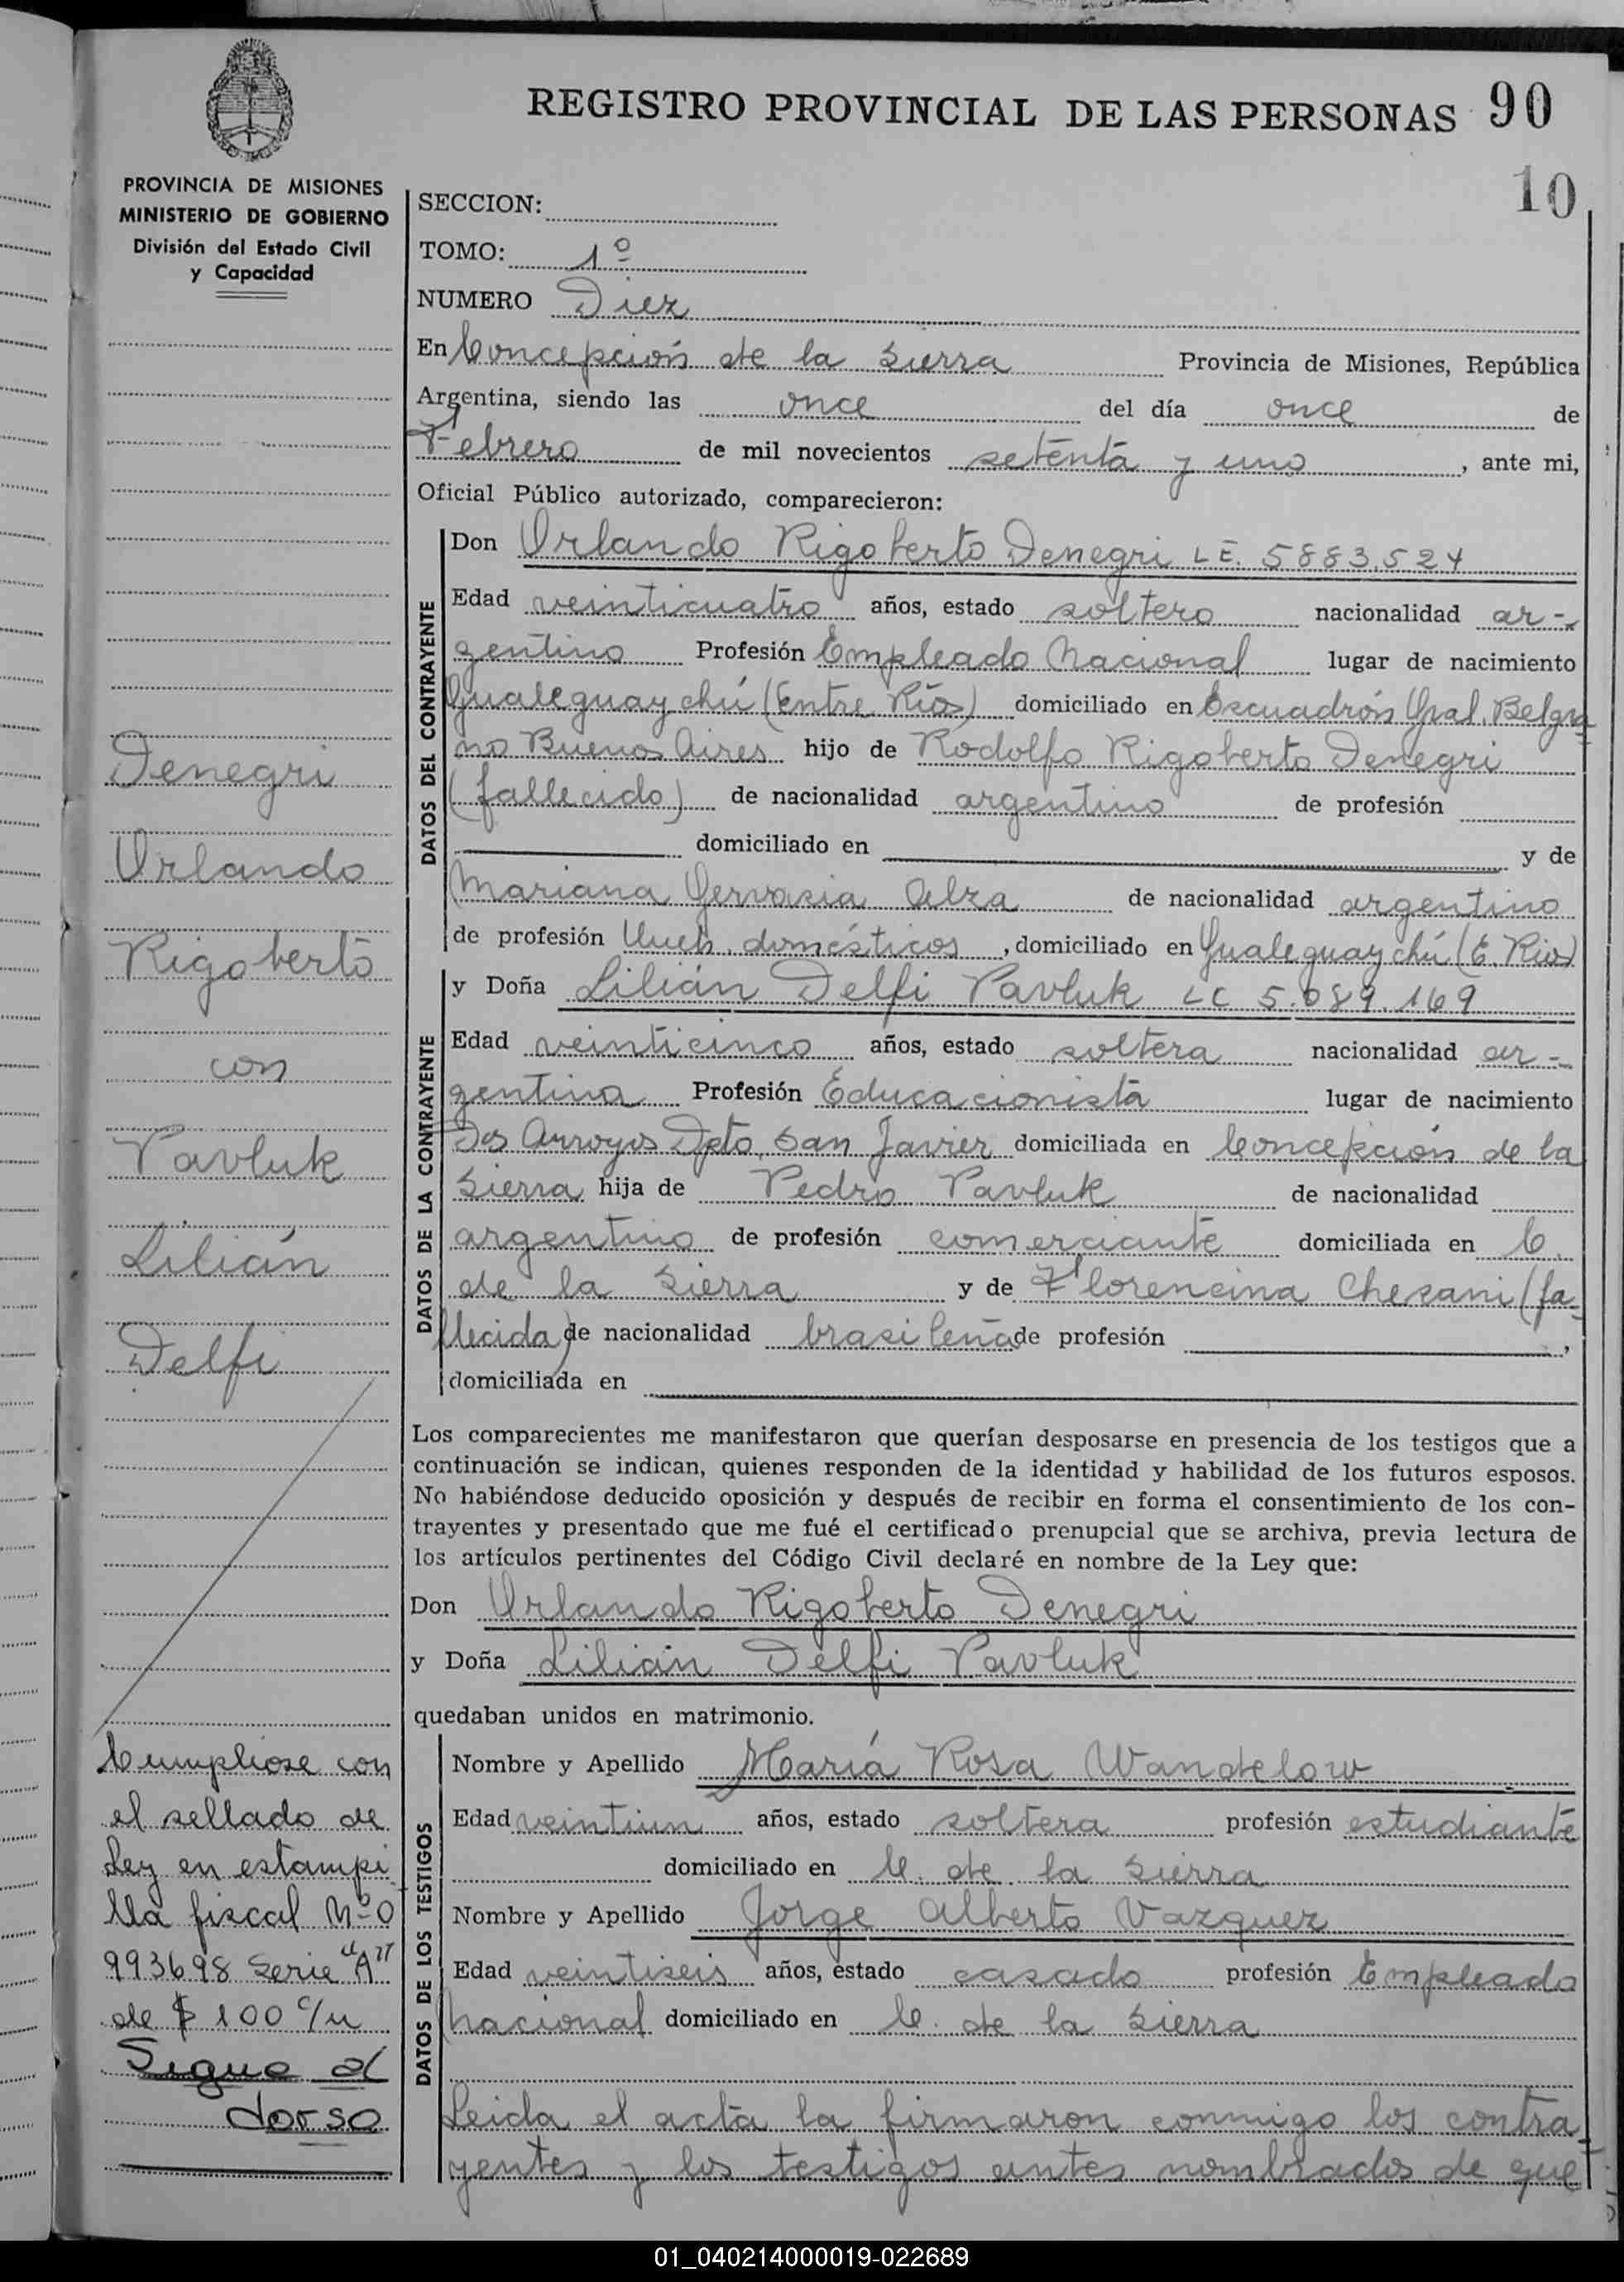 REGISTRO PROVINCIAL DE LAS PERSONAS 90
10
PROVINCIA DE MISIONES
MINISTERIO DE GOBIERNO
División del Estado Civil
y Capacidad
SECCION:
TOMO: 1º
NUMERO Diez
En Concepción de la Sierra Provincia de Misiones, República
Argentina, siendo las once del día once de
Febrero de mil novecientos setenta y uno, ante mi,
Oficial Público autorizado, comparecieron:
DATOS DEL CONTRAYENTE
Don Orlando Rigoberto Denegri LE. 5883.524
Edad veinticuatro años, estado soltero nacionalidad ar-
gentino Profesión Empleado Nacional lugar de nacimiento
Gualeguaychú (Entre Ríos) domiciliado en Escuadrón Gral. Belgra
no Buenos Aires hijo de Rodolfo Rigoberto Denegri
(fallecido) de nacionalidad argentino de profesión
domiciliado en y de
Mariana Gervasia Alza de nacionalidad argentino
de profesión Queh. domésticos, domiciliado en Gualeguaychú (E. Rios)
DATOS DE LA CONTRAYENTE
y Doña Lilián Delfi Pavluk LC 5.089.169
Edad veinticinco años, estado soltera nacionalidad ar-
gentina Profesión Educacionista lugar de nacimiento
Dos Arroyos Dpto. San Javier domiciliada en Concepción de la
Sierra hija de Pedro Pavluk de nacionalidad
argentino de profesión comerciante domiciliada en C.
de la Sierra y de Florencina Chezani (fa-
llecida) de nacionalidad brasileña de profesión ,
domiciliada en
Los comparecientes me manifestaron que querían desposarse en presencia de los testigos que a
continuación se indican, quienes responden de la identidad y habilidad de los futuros esposos.
No habiéndose deducido oposición y después de recibir en forma el consentimiento de los con-
trayentes y presentado que me fué el certificado prenupcial que se archiva, previa lectura de
los artículos pertinentes del Código Civil declaré en nombre de la Ley que:
Don Orlando Rigoberto Denegri
y Doña Lilián Delfi Pavluk
quedaban unidos en matrimonio.
DATOS DE LOS TESTIGOS
Nombre y Apellido María Rosa Wandelow
Edad veintiun años, estado soltera profesión estudiante
domiciliado en C. de la Sierra
Nombre y Apellido Jorge Alberto Vazquez
Edad veintiseis años, estado casado profesión Empleado
Nacional domiciliado en C. de la Sierra
Leida el acta la firmaron conmigo los contra-
yentes y los testigos antes nombrados de que
Denegri
Orlando
Rigoberto
con
Pavluk
Lilián
Delfi
Cumpliose con
el sellado de
Ley en estampi
lla fiscal Nº 0
993698 Serie "A"
de $ 100 c/u
Sigue al
dorso
01_040214000019-022689